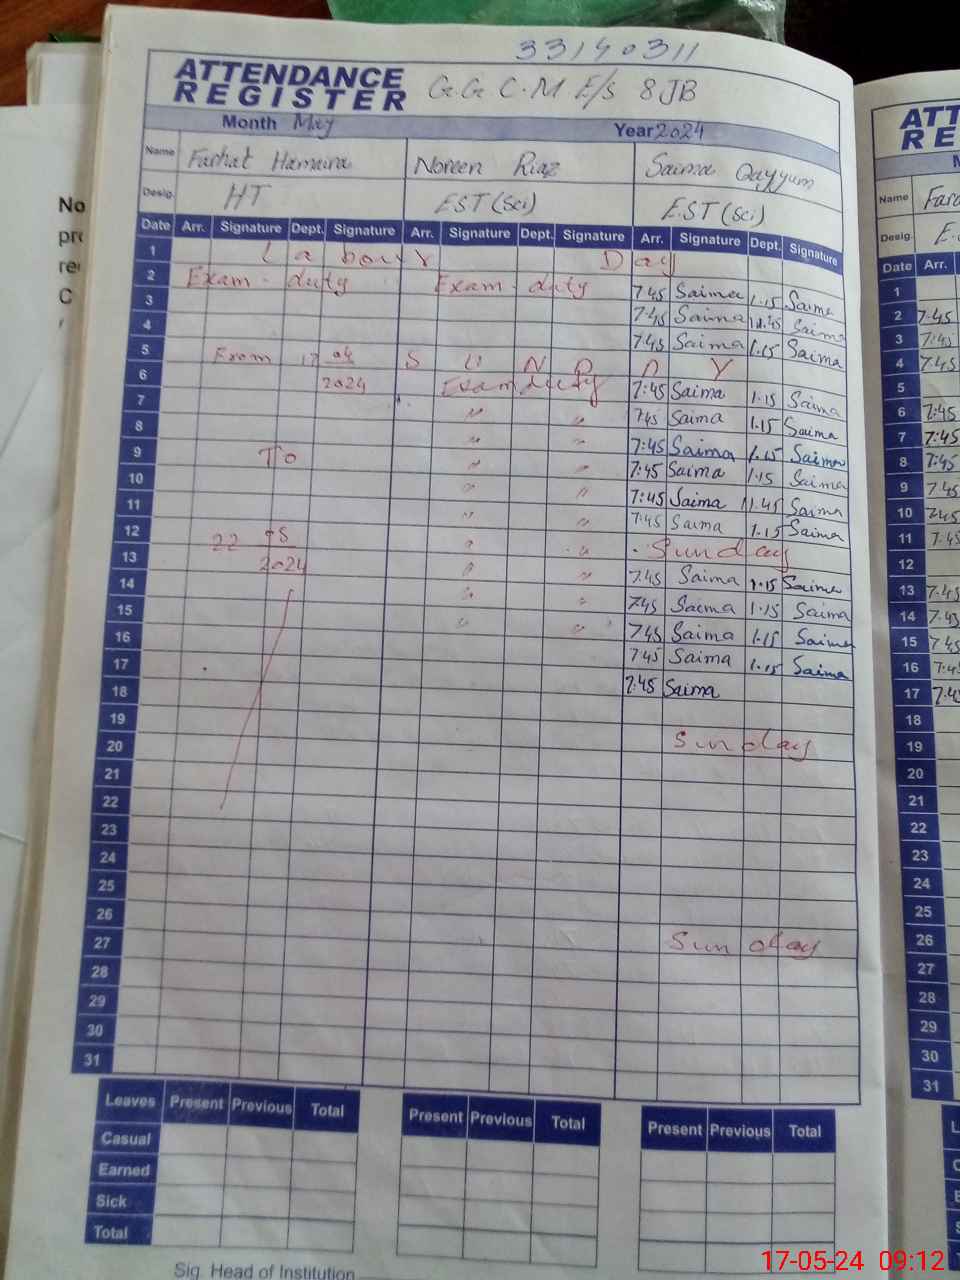 33140311
ATTENDANCE REGISTER G.G.C.M E/S 8 JB
Month May Year 2024
Name Farhat Hamaira Noreen Riaz Saima Qayyum
Desig. HT EST (Sci) E.ST (Sci)
Date Arr. Signature Dept. Signature Arr. Signature Dept. Signature Arr. Signature Dept. Signature
1 Labour Day
2 Exam-duty Exam-duty 7:45 Saima 1:15 Saima
3 7:45 Saima 11:45 Saima
4 7:45 Saima 1:15 Saima
5 From 17 04 SUNDAY
6 2024 Exam duty 7:45 Saima 1:15 Saima
7 " " 7:45 Saima 1:15 Saima
8 " " 7:45 Saima 1:15 Saima
9 To " " 7:45 Saima 1:15 Saima
10 " " 7:45 Saima 11:45 Saima
11 " " 7:45 Saima 1:15 Saima
12 22 05 " " Sunday
13 2024 " " 7:45 Saima 1:15 Saima
14 " " 7:45 Saima 1:15 Saima
15 " " 7:45 Saima 1:15 Saima
16 7:45 Saima 1:15 Saima
17 7:45 Saima
18
19 Sunday
20
21
22
23
24
25
26
27 Sunday
28
29
30
31
Leaves Present Previous Total Present Previous Total Present Previous Total
Casual
Earned
Sick
Total
Sig. Head of Institution
ATT
RE
Name
Desig.
Date Arr.
1
2 7:45
3 7:45
4 7:45
5
6 7:45
7 7:45
8 7:45
9 7:45
10 7:45
11 7:45
12
13 7:45
14 7:45
15 7:45
16 7:45
17 7:45
18
19
20
21
22
23
24
25
26
27
28
29
30
31
No
17-05-24 09:12